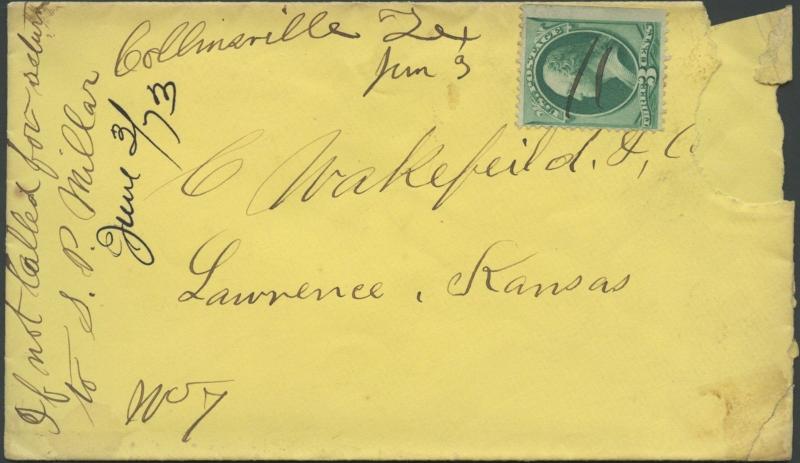 Collinsville Tex
Jun 3
June 3/73
If not Called for return
to S. P. Millar
C Wakefeild. &, C
Lawrence, Kansas
No 7
U.S. POSTAGE
3 CENTS